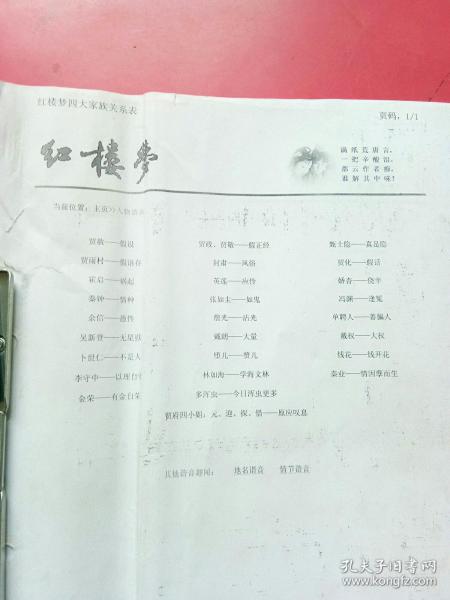 红楼梦四大家族关系表
页码，1/1
红楼梦
满纸荒唐言，
一把辛酸泪。
都云作者痴，
谁解其中味！
当前位置：主页>>人物谐音
贾敬——假设 贾政、贾敬——假正经 甄士隐——真是隐
贾雨村——假语存 封肃——风俗 贾化——假话
霍启——祸起 英莲——应怜 娇杏——侥幸
秦钟——情种 张如圭——如鬼 冯渊——逢冤
余信——愚信 詹光——沾光 单聘人——善骗人
吴新登——无星戥 戴权——大权
卜世仁——不是人 堕儿——赘儿 钱花——钱开花
李守中——以理自守 林如海——学海文林 秦业——情因孽而生
金荣——有金自荣 多浑虫——今日浑虫更多
贾府四小姐：元、迎、探、惜——原应叹息
其他谐音趣闻： 地名谐音 情节谐音
孔夫子旧书网
www.kongfz.com